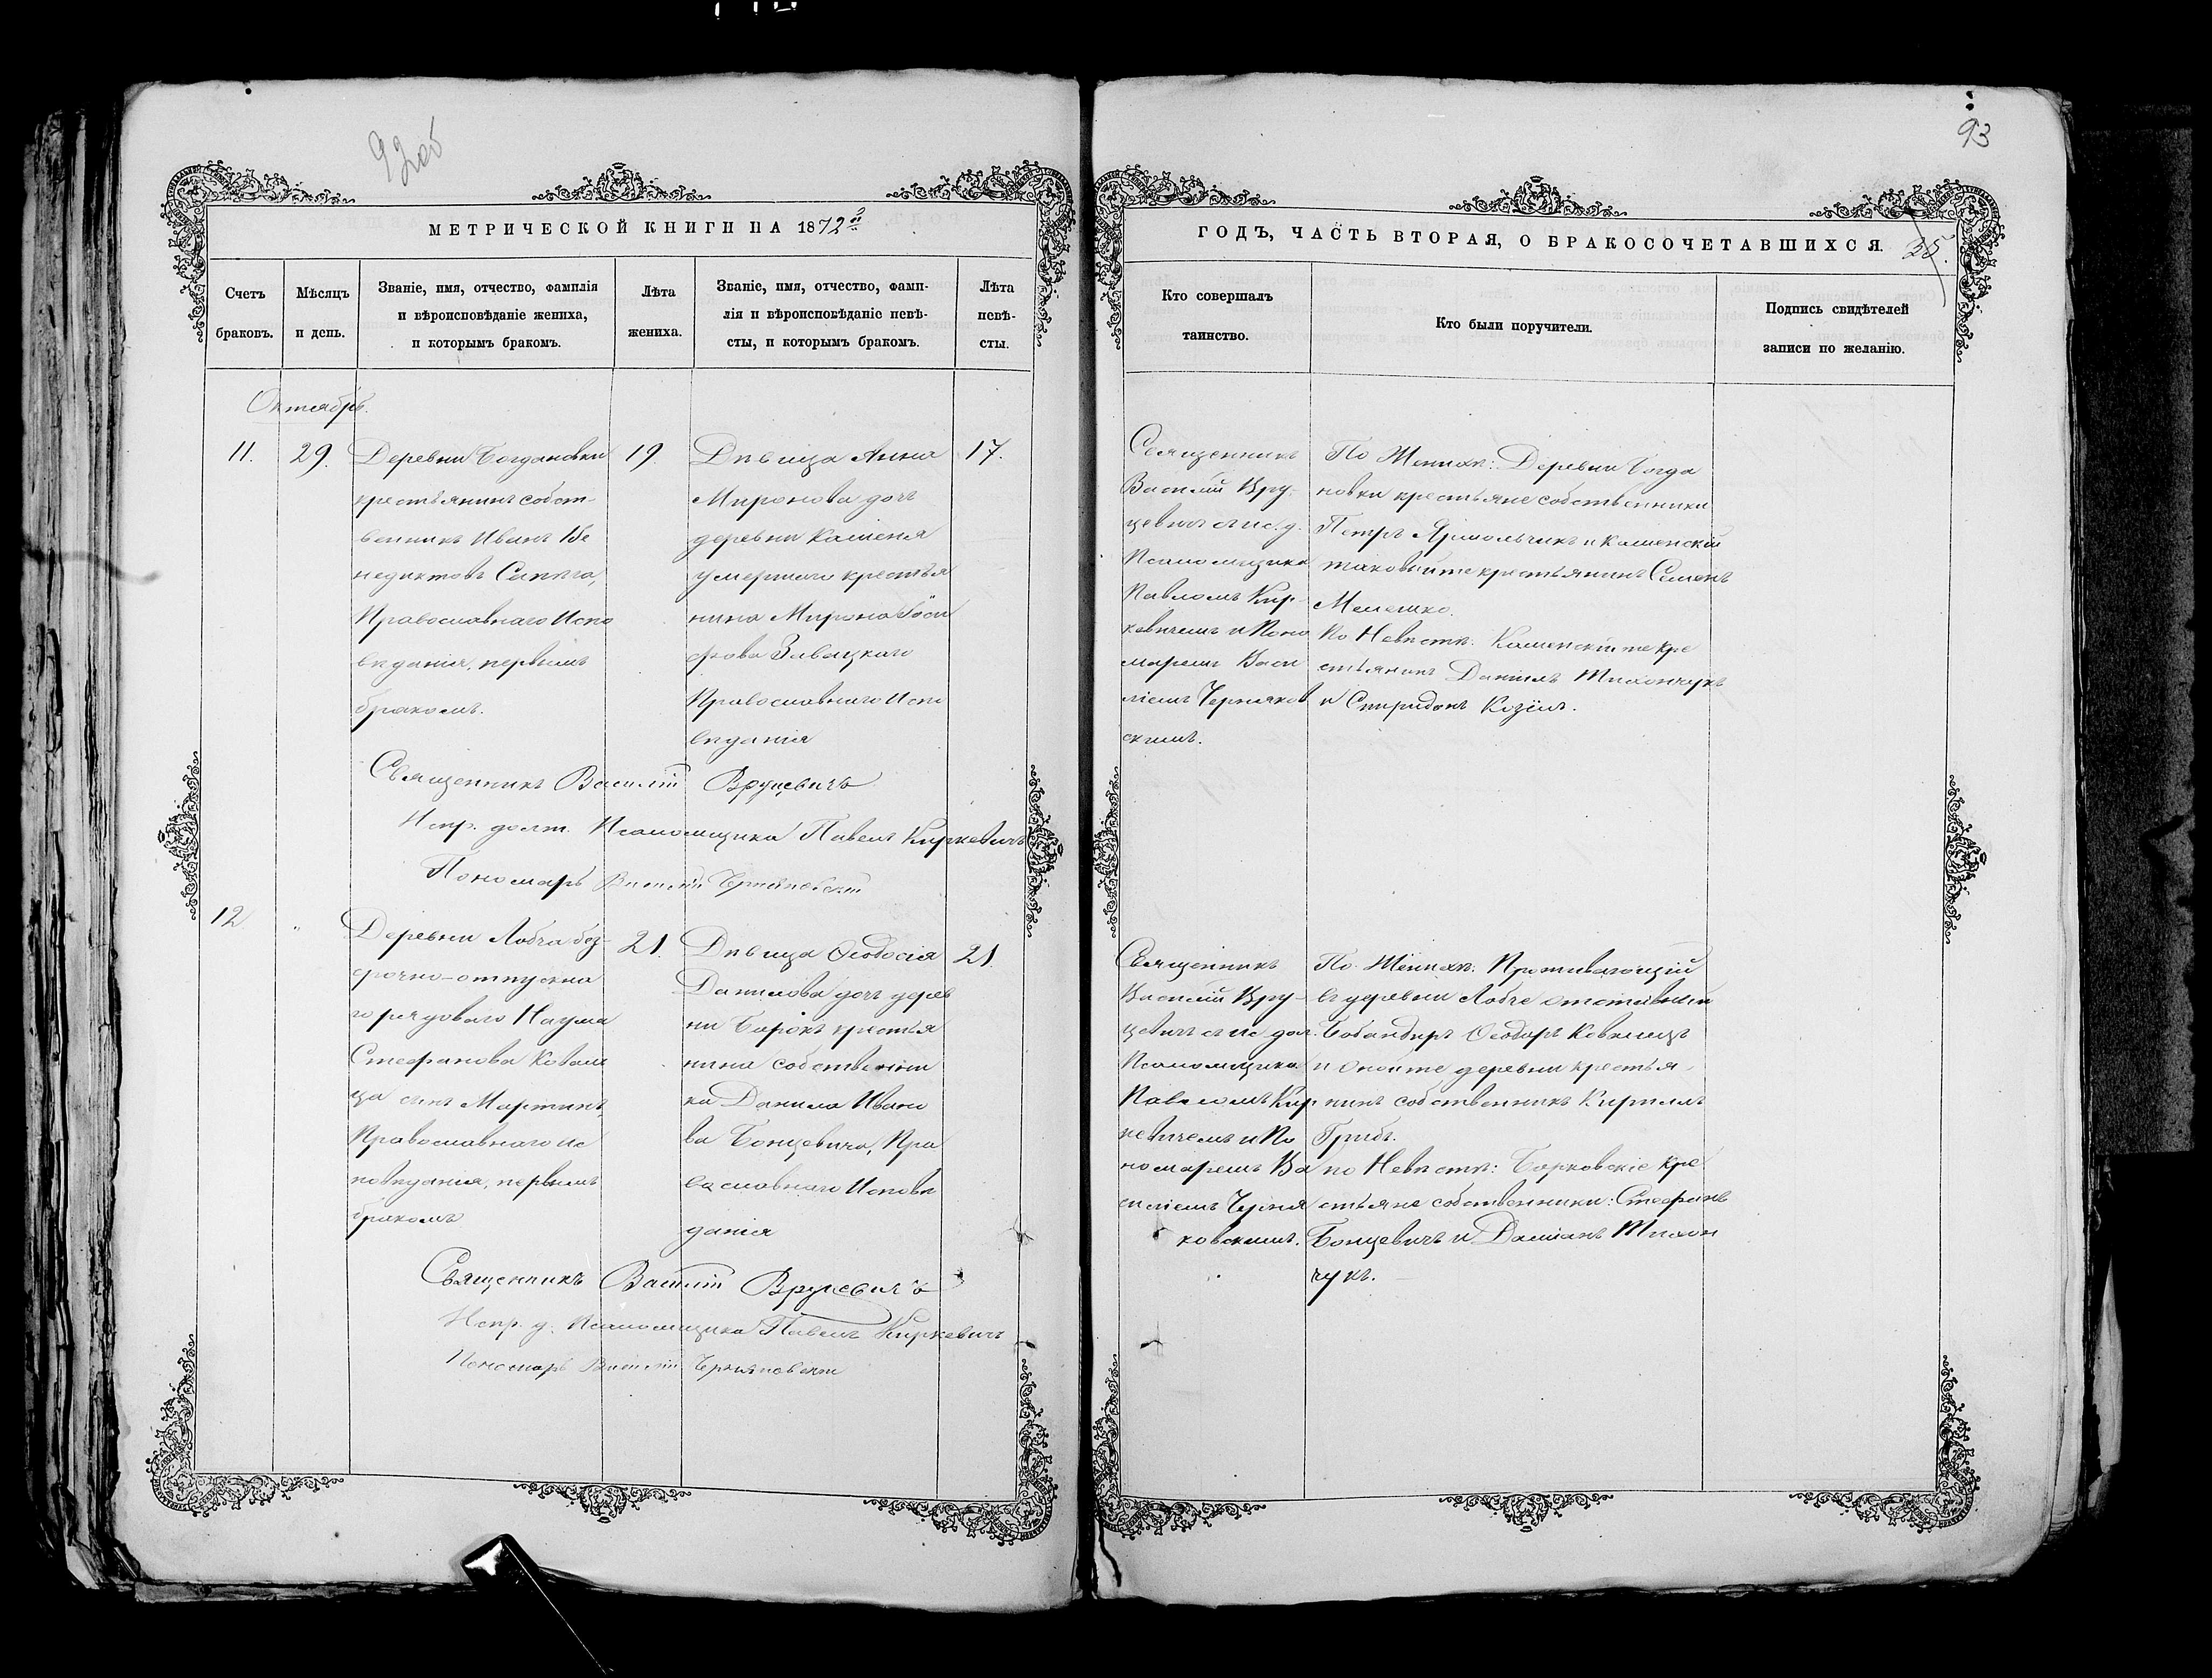 92об
МЕТРИЧЕСКОЙ КНИГИ НА 1872й
Счетъ браковъ.
Мѣсяцъ и день.
Званіе, имя, отчество, фамилія и вѣроисповѣданіе жениха, и которымъ бракомъ.
Лѣта жениха.
Званіе, имя, отчество, фамилія и вѣроисповѣданіе невѣсты, и которымъ бракомъ.
Лѣта невѣсты.
Октябрь.
11.
29.
Деревни Богдановки
крестьянинъ собст-
венникъ Иванъ Бе
недиктовъ Сапѣга,
Православнаго Испо
вѣданія, первымъ
бракомъ.
19.
Дѣвица Анна
Миронова дочь
деревни Каменя
умершаго крестья
нина Мирона Іоси
фова Завацкаго
Православнаго Испо
вѣданія
17.
Священникъ Василій Вруцевичъ
Испр. долж. Псаломщика Павелъ Киркевичъ
Пономарь Василій Черняковскій
12
"
Деревни Лобча без-
срочно-отпускна
го рядоваго Наума
Стефанова Ковале
ца сынъ Мартинъ,
Православнаго ис
повѣданія, первымъ
бракомъ
21.
Дѣвица Ѳеодосія
Данилова дочь дерев
ни Борокъ крестья
нина собственни
ка Данила Ивано
ва Бонцевича, Пра
вославнаго Исповѣ
данія
21.
Священникъ Василій Вруцевичъ
Испр. д. Псаломщика Павелъ Киркевичъ
Пономарь Василій Черняковскій
93
ГОДЪ, ЧАСТЬ ВТОРАЯ, О БРАКОСОЧЕТАВШИХСЯ.
35.
Кто совершалъ таинство.
Кто были поручители.
Подпись свидѣтелей записи по желанію.
Священникъ
Василій Вру-
цевичъ съ ис. д.
Псаломщика
Павломъ Кир-
кевичемъ и Поно
маремъ Васи
ліемъ Черняков
скимъ.
По Женихѣ: Деревни Богда
новки крестьяне собственники
Петръ Ярмольчикъ и Каменскій
таковыйже крестьянинъ Семенъ
Мелешко.
По Невѣстѣ: Каменскійже кре
стьянинъ Даніилъ Тихончукъ
и Спиридонъ Козѣлъ.
Священникъ
Василій Вру-
цевичъ съ ис дол.
Псаломщика
Павломъ Кир
кевичемъ и По
номаремъ Ва
силіемъ Черня
ковскимъ.
По Женихѣ: Проживающій
въ деревни Лобче отставный
Ѳеодоръ Ковалецъ
и онойже деревни крестья-
нинъ собственникъ Кириллъ
Грибъ.
по Невѣстѣ: Борковскіе кре
стьяне собственники: Стефанъ
Бонцевичъ и Даміанъ Тихон
чукъ.